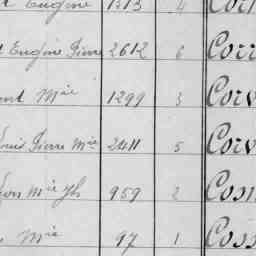 Eugène 1313 4 Cor
Eugène Pierre 2612 6 Corr
Mie 1299 3 Corv
Louis Pierre Mie 2411 5 Corv
Mie Jh 959 2 Cos
Mie 97 1 Coss